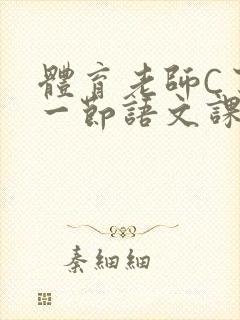 體育老師C
一節語文課
秦細細